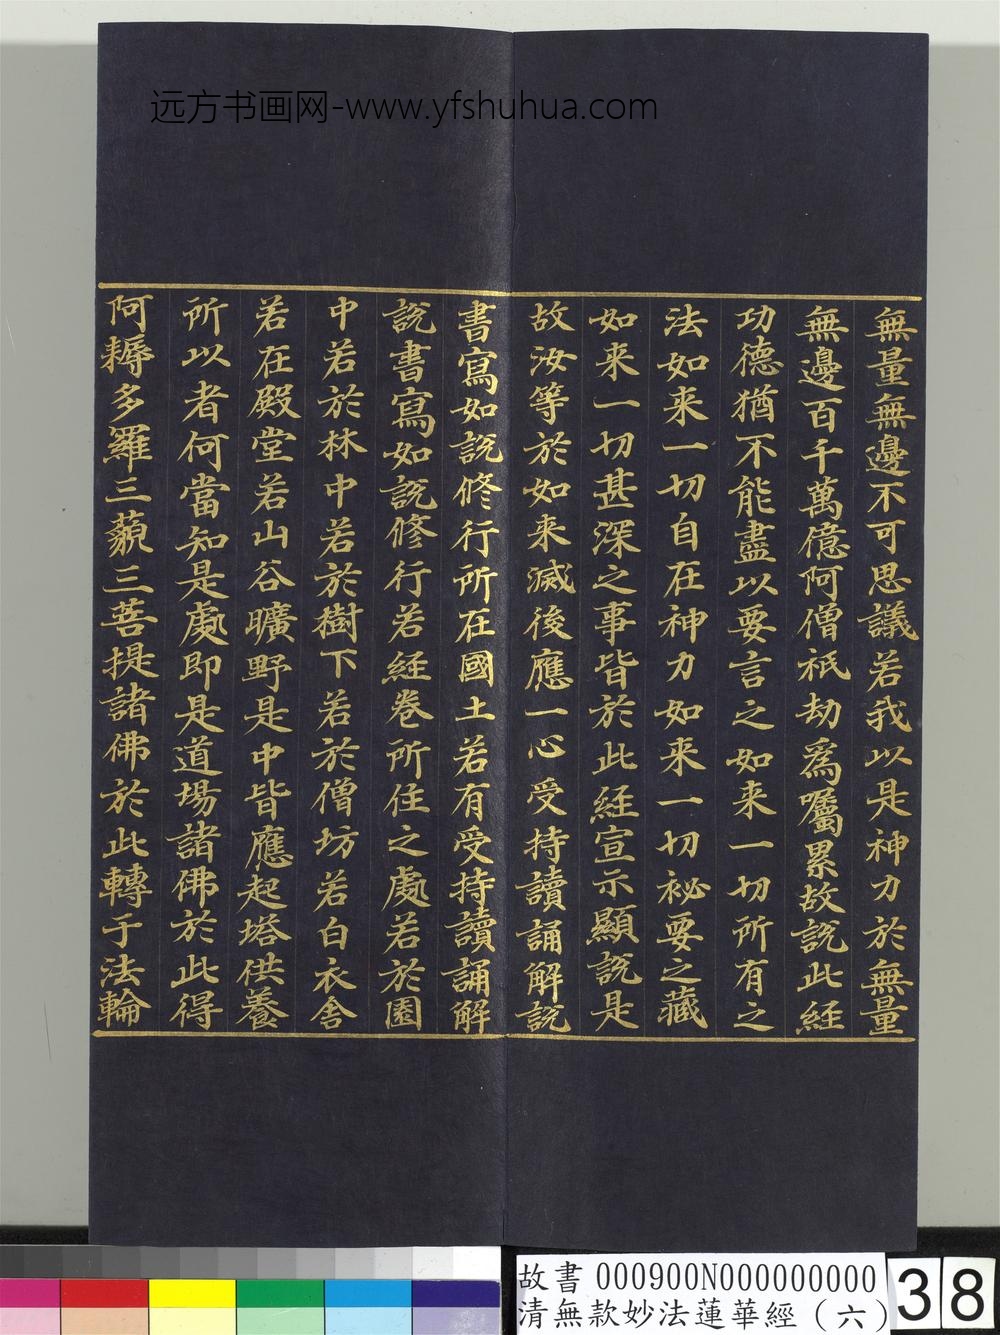 远方书画网-www.yfshuhua.com
無量無邊不可思議若我以是神力於無量
無邊百千萬億阿僧祇劫爲囑累故說此經
功德猶不能盡以要言之如来一切所有之
法如来一切自在神力如来一切祕要之藏
如来一切甚深之事皆於此經宣示顯說是
故汝等於如来滅後應一心受持讀誦解說
書寫如說修行所在國土若有受持讀誦解
說書寫如說修行若經卷所住之處若於園
中若於林中若於樹下若於僧坊若白衣舍
若在殿堂若山谷曠野是中皆應起塔供養
所以者何當知是處即是道場諸佛於此得
阿耨多羅三藐三菩提諸佛於此轉于法輪
故書 000900N000000000 38
清無款妙法蓮華經（六）